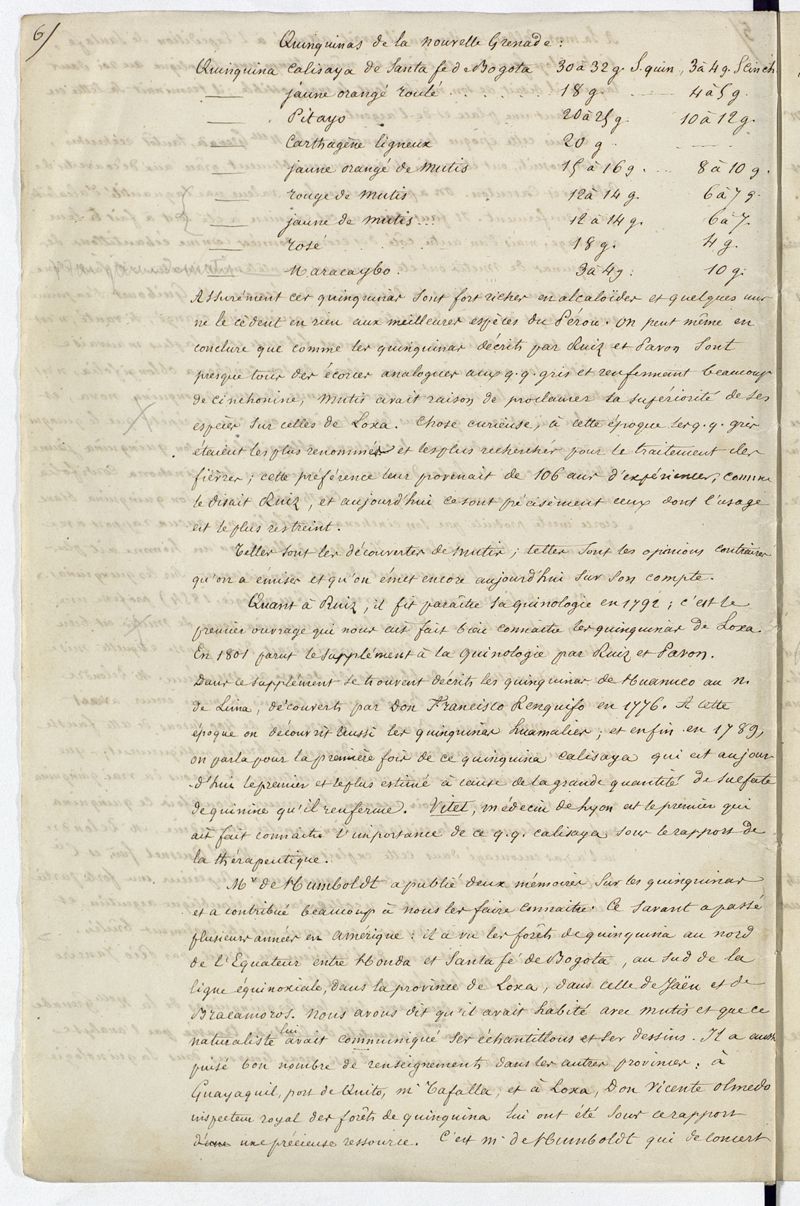 6/
Quinquinas de la nouvelle Grenade :
Quinquina calisaya de Santa fé de Bogota 30 à 32 g. S. quin., 3 à 4 g. S cinch.
—— jaune orangé roulé . . . . . 18 g. —— 4 à 5 g.
—— Pitayo 20 à 25 g. 10 à 12 g.
—— Carthagène ligneux 20 g. — — —
—— jaune orangé de Mutis 15 à 16 g. ... 8 à 10 g.
—— rouge de Mutis 12 à 14 g. 6 à 7 g.
—— jaune de Mutis... 12 à 14 g. 6 à 7.
—— rosé . . . . . 18 g. 4 g.
—— Maracaybo. 3 à 4 g. 10 g.
Assurément ces quinquinas sont fort riches en alcaloïdes et quelques uns
ne le cèdent en rien aux meilleures espèces du Pérou. On peut même en
conclure que comme les quinquinas décrits par Ruiz et Pavon sont
presque tous des écorces analogues aux q.q. gris et renferment beaucoup
de cinchonine, Mutis avait raison de proclamer la supériorité de ses
espèces sur celles de Loxa. Chose curieuse, à cette époque les q.q. gris
étaient les plus renommés et les plus recherchés pour le traitement des
fièvres ; cette préférence leur provenait de 106 ans d'expériences, comme
le disait Ruiz, et aujourd'hui ce sont précisément ceux dont l'usage
est le plus restreint.
Telles sont les découvertes de Mutis ; telles sont les opinions contraires
qu'on a émises et qu'on émet encore aujourd'hui sur son compte.
Quant à Ruiz, il fit paraître sa quinologie en 1792 ; c'est le
premier ouvrage qui nous ait fait bien connaître les quinquinas de Loxa.
En 1801 parut le supplément à la quinologie par Ruiz et Pavon.
Dans ce supplément se trouvent décrits les quinquinas de Huanuco au n.
de Lima, découverts par Don Francisco Renquifo en 1776. A cette
époque on découvrit aussi les quinquinas huamalies ; et enfin en 1789,
on parla pour la première fois de ce quinquina calisaya qui est aujour-
-d'hui le premier et le plus estimé à cause de la grande quantité de sulfate
de quinine qu'il renferme. Vitet, médecin de Lyon est le premier qui
ait fait connaître l'importance de ce q.q. calisaya sous le rapport de
la thérapeutique.
Mr de Humboldt a publié deux mémoires sur les quinquinas
et a contribué beaucoup à nous les faire connaître. Ce savant a passé
plusieurs années en Amérique : il a vu les forêts de quinquina au nord
de l'Equateur entre Honda et Santa fé de Bogota, au sud de la
ligne équinoxiale, dans la province de Loxa, dans celle de Jaën et de
Bracamoros. Nous avons dit qu'il avait habité avec Mutis et que ce
naturaliste lui avait communiqué ses échantillons et ses dessins. Il a aussi
puisé bon nombre de renseignements dans les autres provinces : à
Guayaquil, port de Quito, Mr Tafalla, et à Loxa, Don Vicente Olmedo
inspecteur royal des forêts de quinquina lui ont été sous ce rapport
d'une précieuse ressource. C'est Mr de Humboldt qui de concert